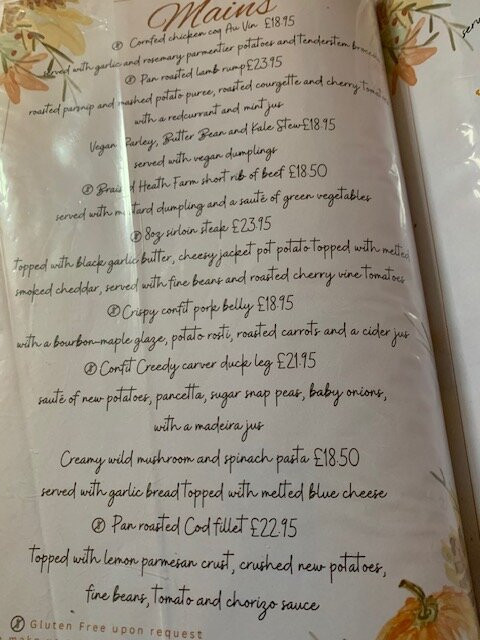 Mains
Cornfed chicken coq Au Vin £18.95
served with garlic and rosemary parmentier potatoes and Tenderstem
Pan roasted lamb rump £23.95
roasted parsnip and mashed potato puree, roasted courgette and cherry
with a redcurrant and mint jus
Vegan Barley, Butter Bean and Kale Stew £18.95
served with vegan dumplings
Braised Heath Farm short rib of beef £18.50
served with mustard dumpling and a sauté of green vegetables
8oz sirloin steak £23.95
topped with black garlic butter, cheesy jacket pot potato topped with melted
smoked cheddar, served with fine beans and roasted cherry vine tomatoes
Crispy confit pork belly £18.95
with a bourbon-maple glaze, potato rosti, roasted carrots and a cider jus
Confit Creedy carver duck leg £21.95
sauté of new potatoes, pancetta, sugar snap peas, baby onions,
with a madeira jus
Creamy wild mushroom and spinach pasta £18.50
served with garlic bread topped with melted blue cheese
Pan roasted Cod fillet £22.95
topped with lemon parmesan crust, crushed new potatoes,
fine beans, tomato and chorizo sauce
Gluten Free upon request